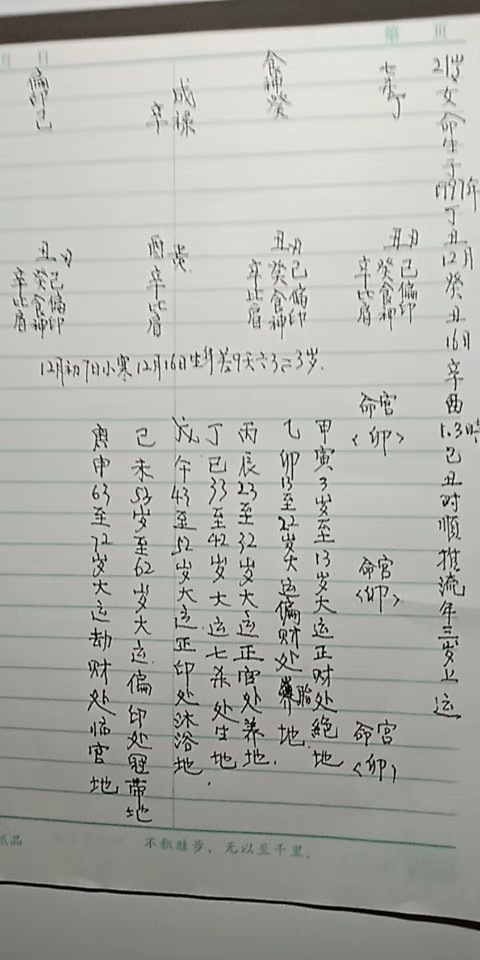 第 页
月 日
21岁女命生于1997年丁丑12月癸丑16日辛酉1.3時己丑时順推流年三岁上运
七杀丁
食神癸
戌禄
辛
偏印己
丑月
己偏印
癸食神
辛比肩
丑月
己偏印
癸食神
辛比肩
酉
辛比肩
丑月
己偏印
癸食神
辛比肩
12月初7日小寒12月16日生年差9天六3=3岁.
命宫
<卯>
命宫
<卯>
命宫
<卯>
甲寅3岁至13岁大运正财处絕地
乙卯13至22岁大运偏财处胎地.
丙辰23至32岁大运正官处养地.
丁巳33至42岁大运七杀处生地.
戊午43至52岁大运正印处沐浴地
己未53岁至62岁大运偏印处冠帶地
庚申63至72岁大运劫财处临官地
纸品
不积跬步,无以至千里.